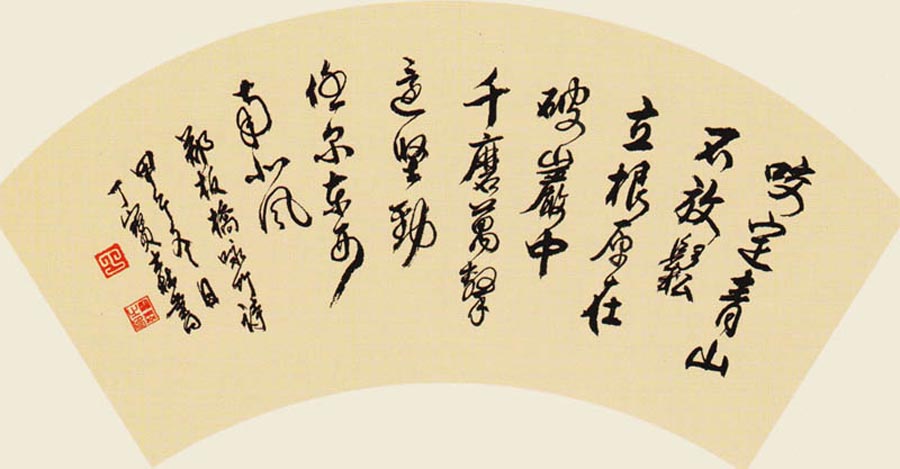 咬定青山
不放鬆
立根原在
破巖中
千磨萬擊
還堅勁
任尔東西
南北風
鄭板橋詠竹詩
甲午冬日
丁寶書